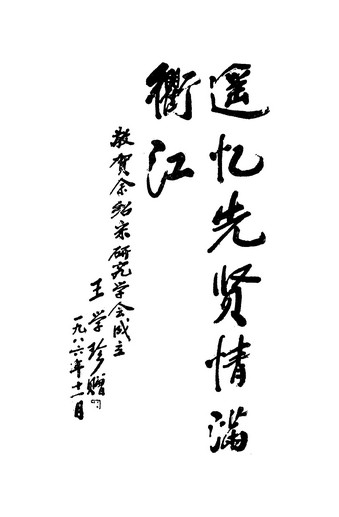 遥忆先贤情满
衢江
敬贺余绍宋研究学会成立
王学珍赠
一九八六年十一月